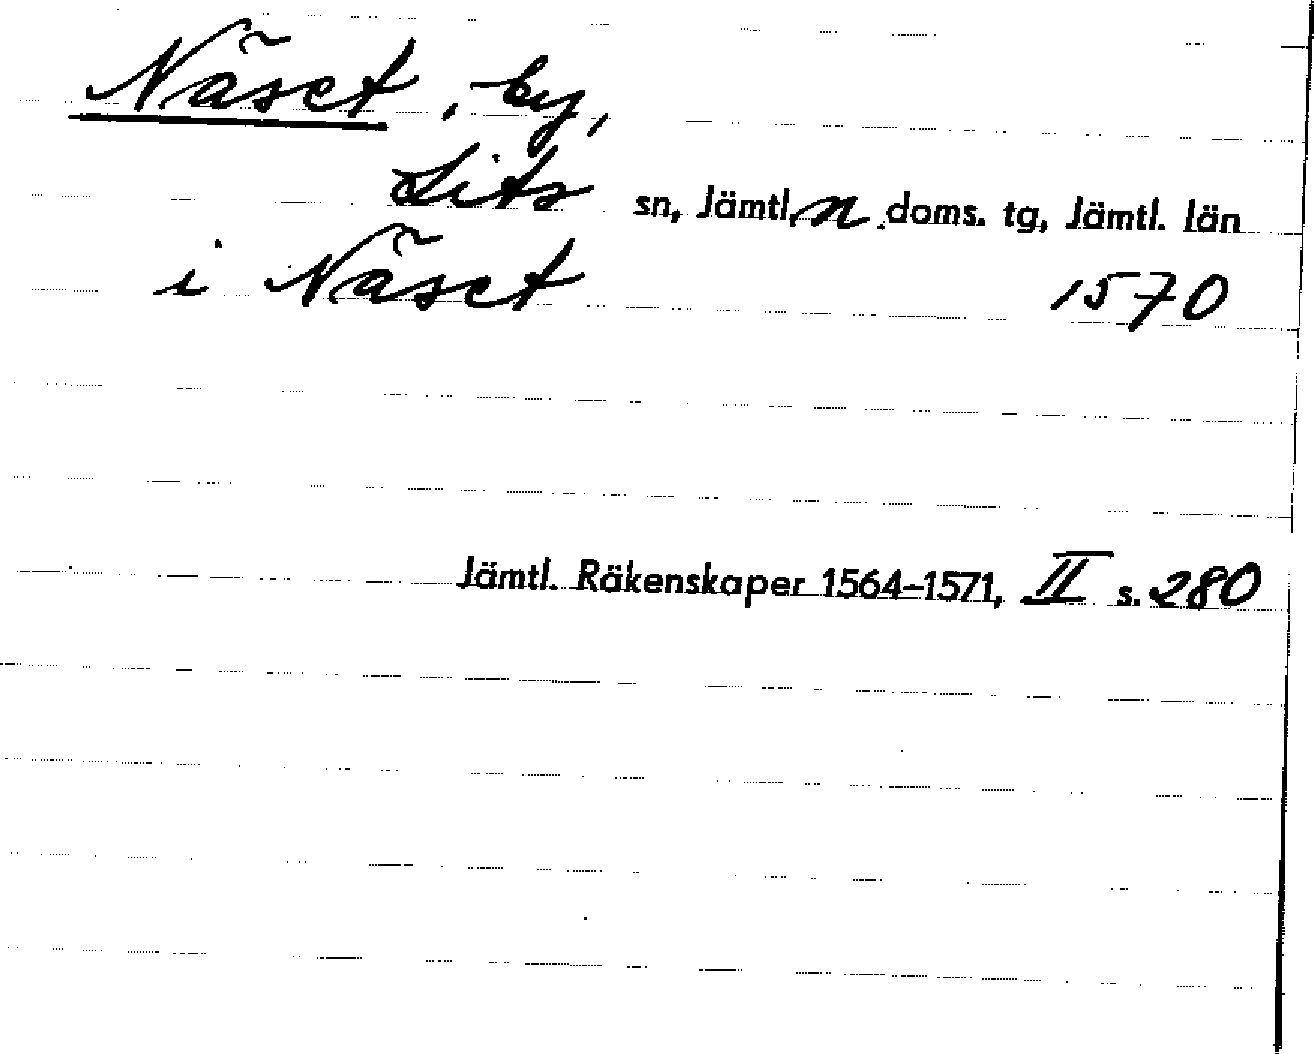 Näset, by,
Lits sn, Jämtl. n. doms. tg, Jämtl. län
i Näset 1570
Jämtl. Räkenskaper 1564-1571, II s. 280